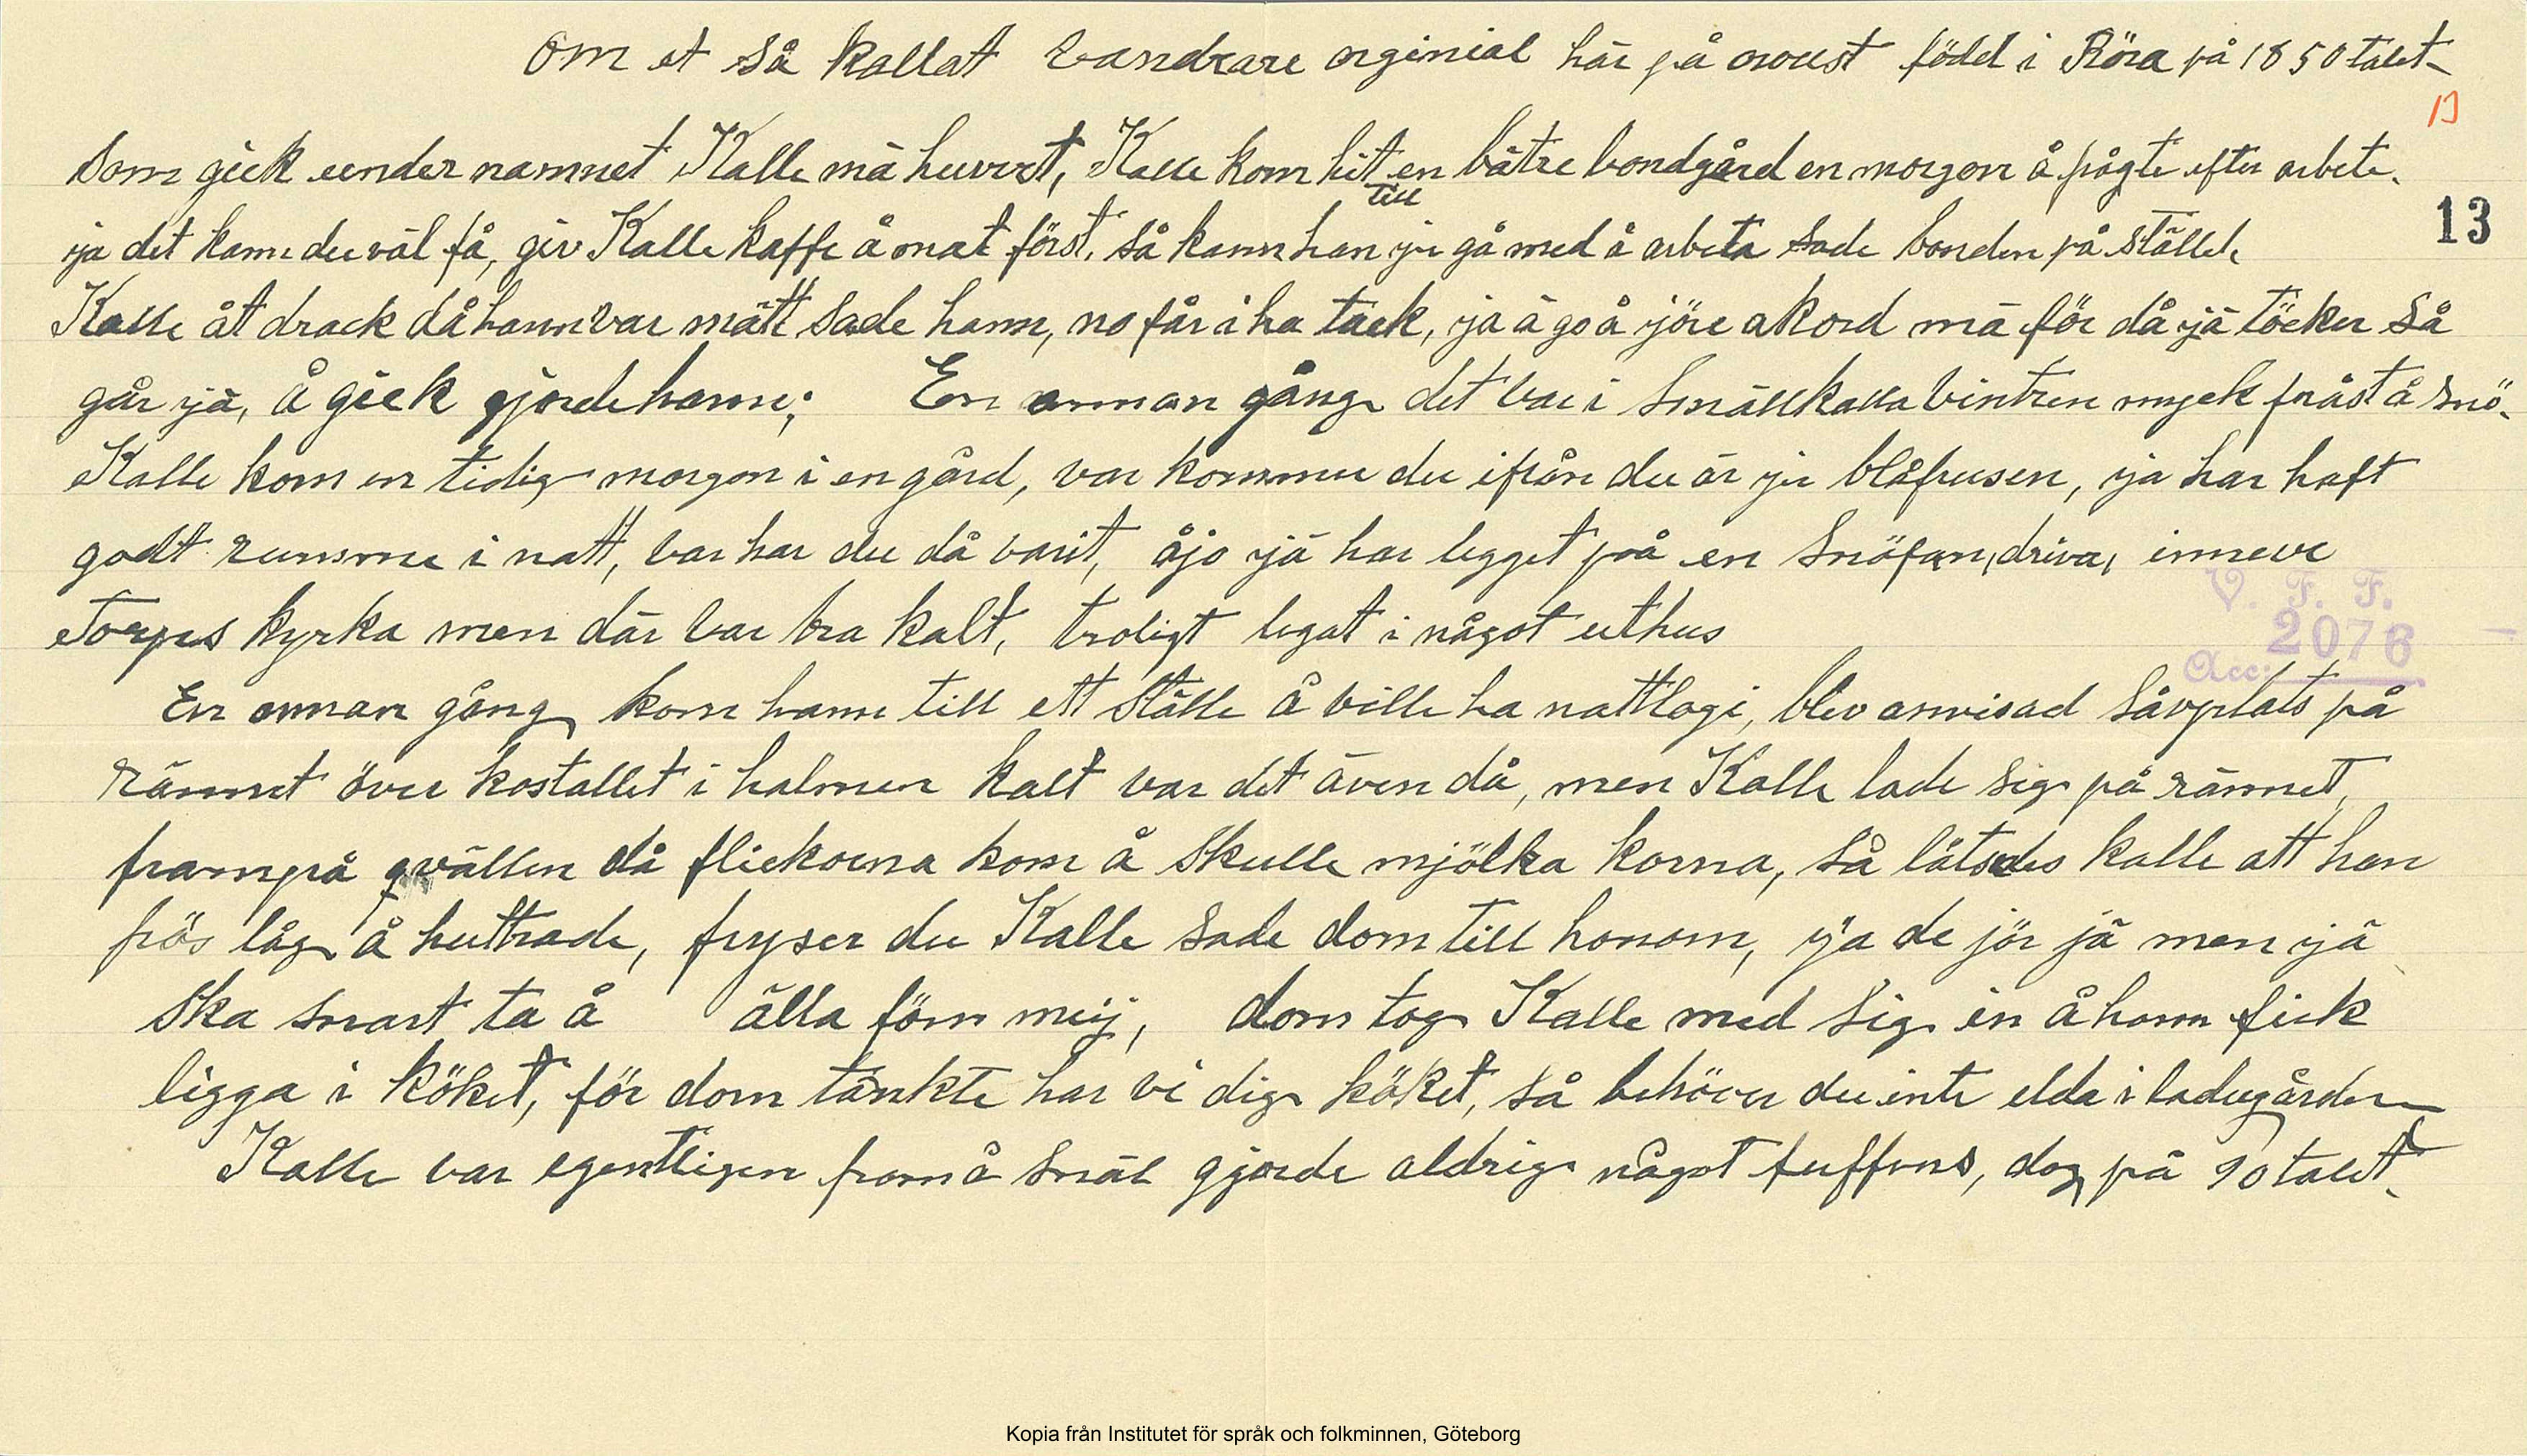 Om et så kallat vandrare orginial här på oroust född i Röra på 1850 talet
13
som gick under namnet Kalle mä huvvet, Kalle kom hit till en bätre bondgård en morgon å frågte efter arbete.
ja det kann du väl få, giv Kalle kaffe å mat först, så kann han ju gå med å arbeta sade bonden på stället
13
Kalle åt drack då hann var mätt sade hann, no får i ha tack, ja ä go å jöre akord mä för då jä töcker så
går jä, å gick gjorde hann; En annan gång det var i smällkalla vintren myck fråst å snö.
Kalle kom en tidig morgon i en gård, var kommer du ifrån du är ju blåfrusen, ja har haft
godt rumme i natt, var har du då varit, åjo jä har legget på en snöfan, driva, inneve
Torps kyrka men där var bra kalt, troligt legat i något uthus
V. F. F.
2076
Acc:
En annan gång kom hann till ett ställe å ville ha nattlogi, blev anvisad såvplats på
rännet över kostallet i halmen kalt var det även då, men Kalle lade sig på rännet,
frampå qvällen då flickorna kom å skulle mjölka korna, så låtsades kalle att han
frös låg å huttrade, fryser du Kalle sade dom till honom, ja de jör jä men jä
ska snart ta å älla föm mij, dom tog Kalle med sig in å hann fick
ligga i köket, för dom tänkte har vi dig köket, så behöver du inte elda i ladugården
Kalle var egentligen from å snäl gjorde aldrig något fuffens, dog på 90 talet.
Kopia från Institutet för språk och folkminnen, Göteborg